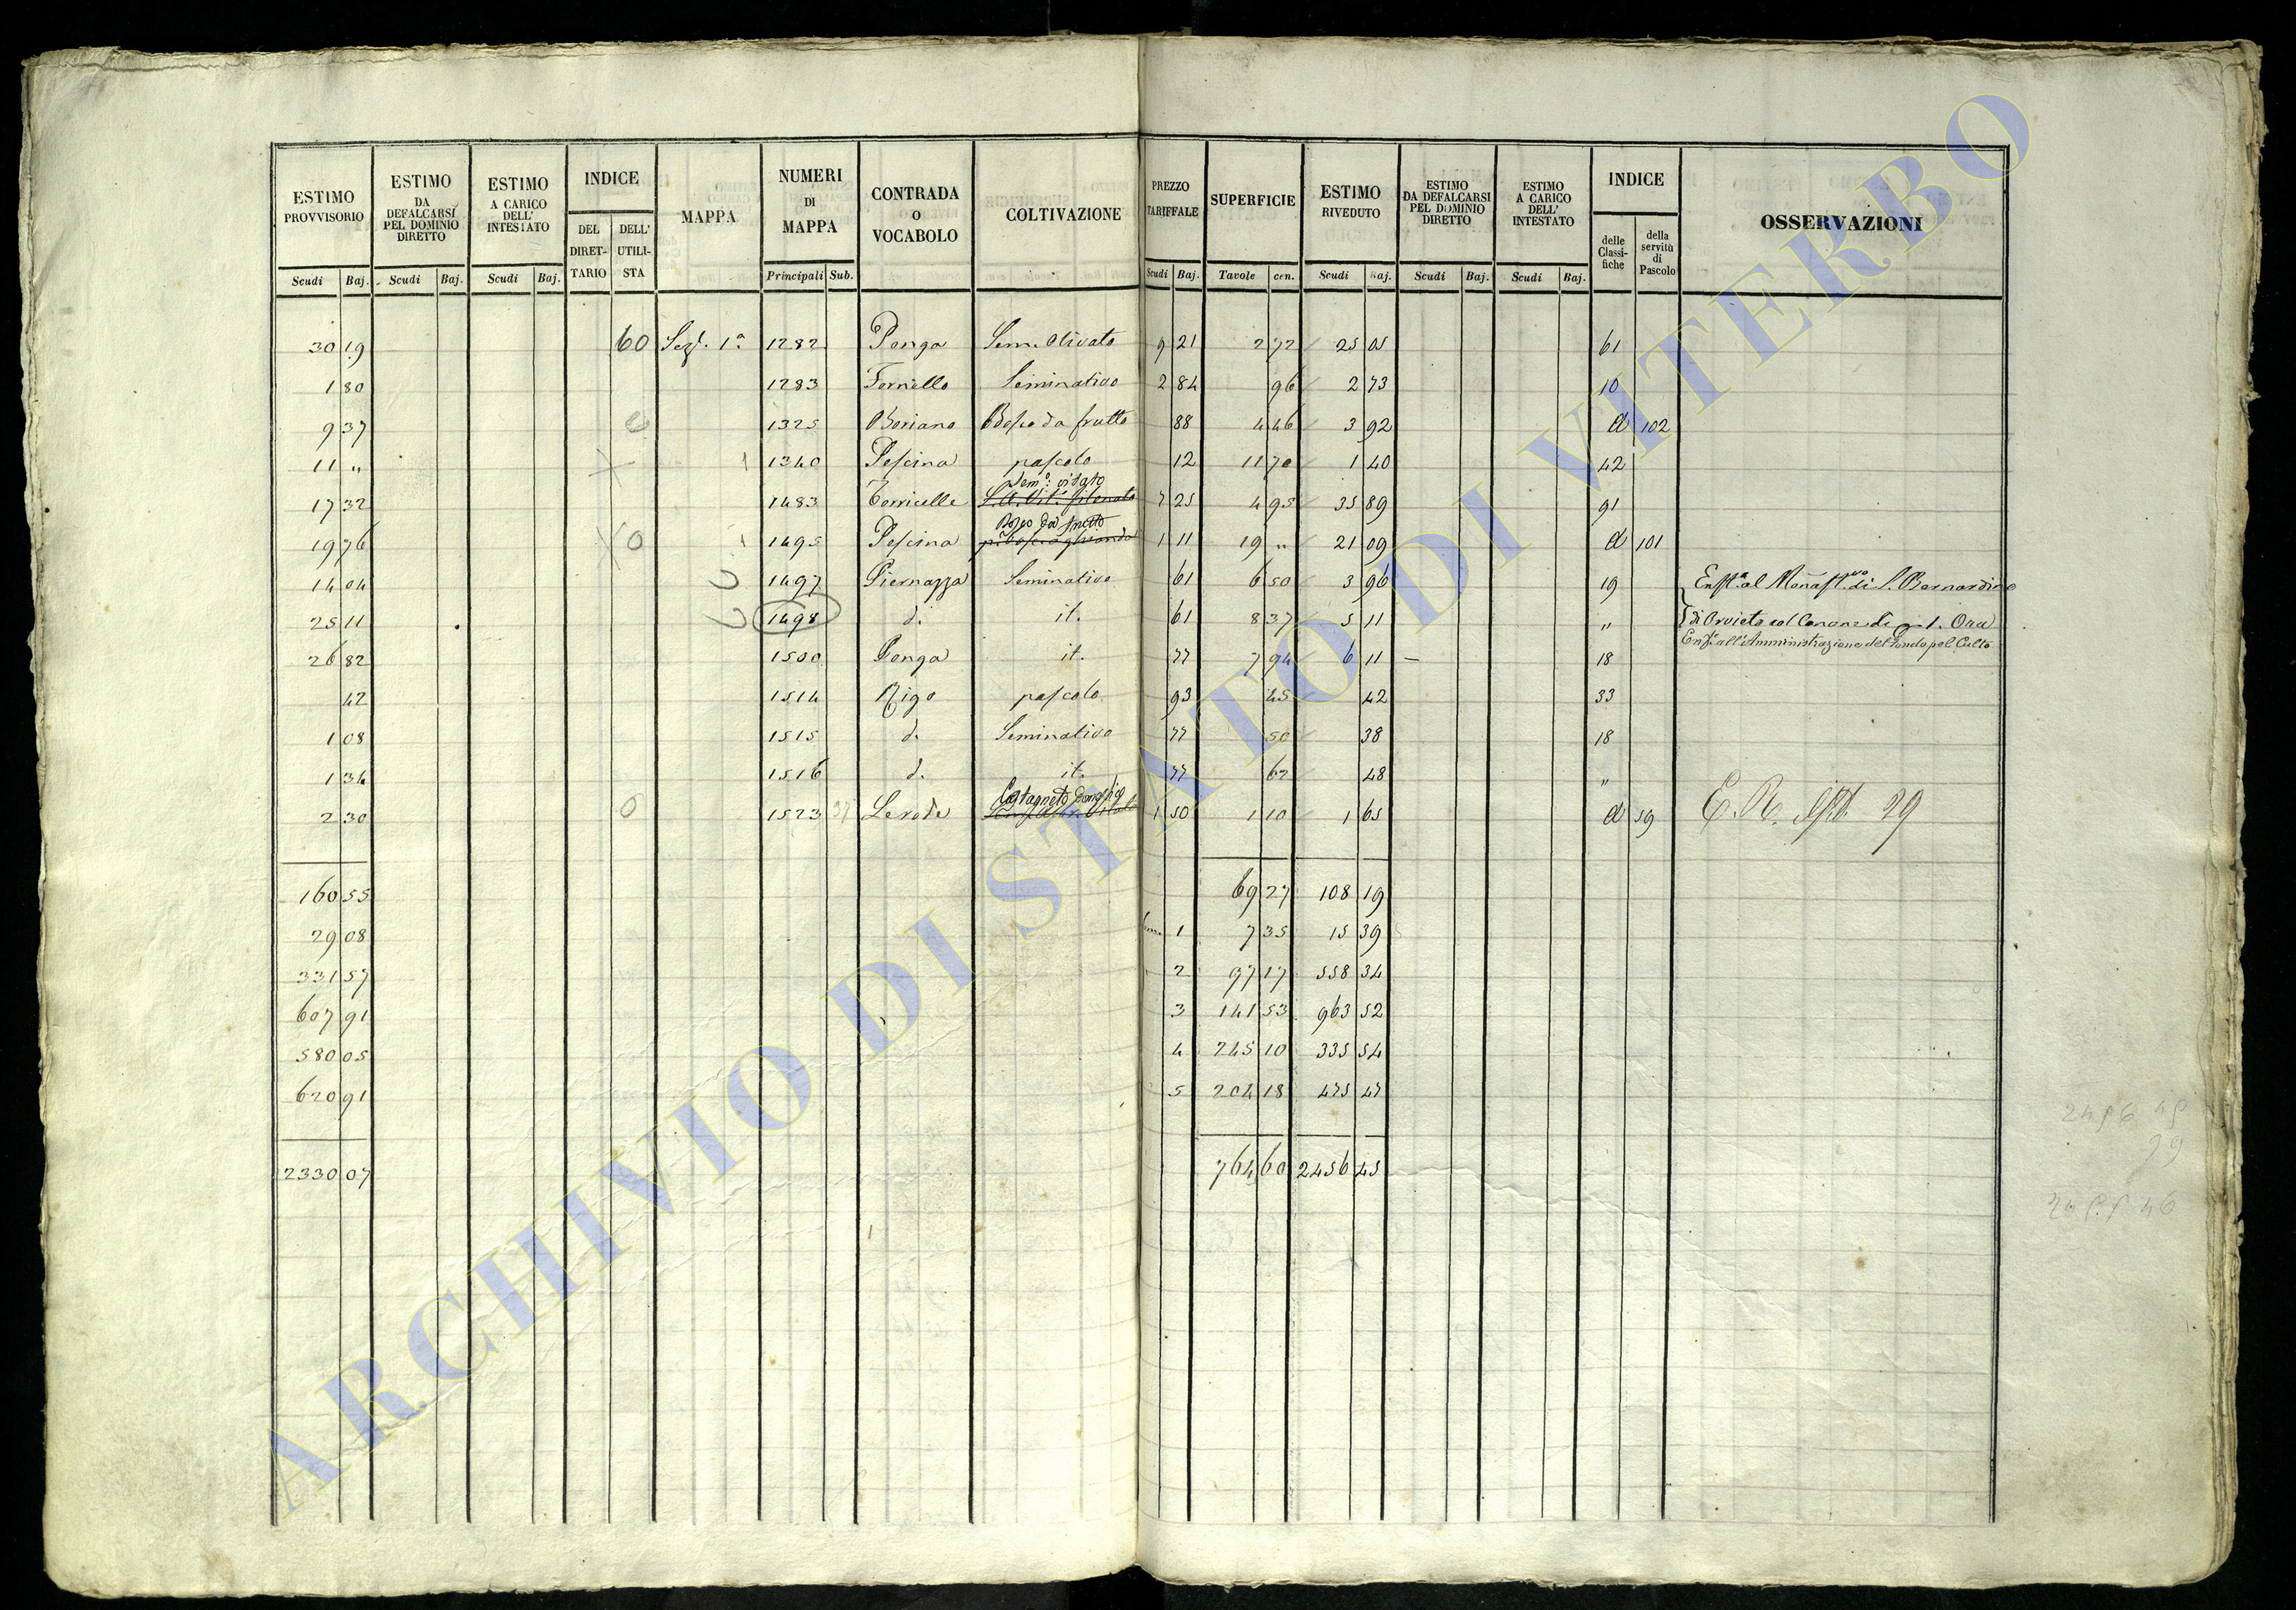 ESTIMO PROVVISORIO | ESTIMO DA DEFALCARSI PEL DOMINIO DIRETTO | ESTIMO A CARICO DELL' INTESTATO | INDICE | MAPPA | NUMERI DI MAPPA | CONTRADA O VOCABOLO | COLTIVAZIONE | PREZZO TARIFFALE | SUPERFICIE | ESTIMO RIVEDUTO | ESTIMO DA DEFALCARSI PEL DOMINIO DIRETTO | ESTIMO A CARICO DELL' INTESTATO | INDICE | OSSERVAZIONI
DEL DIRETTARIO | DELL' UTILISTA | delle Classifiche | della servitù di Pascolo
Scudi | Baj. | Scudi | Baj. | Scudi | Baj. | Principali | Sub. | Scudi | Baj. | Tavole | cen. | Scudi | Baj. | Scudi | Baj. | Scudi | Baj.
30 19 60 Sez. 1ª 1282 Ponga Sem. Olivato 9 21 2 72 25 05 61
1 80 1283 Fornello Seminativo 2 84 96 2 73 10
9 37 1325 Boriano Bosco da frutto 88 4 46 3 92 a 102
11 " 1340 Pescina pascolo 12 11 70 1 40 42
Sem. vitato
17 32 1483 Torricella 7 25 4 95 35 89 91
Bosco da frutto
19 76 O 1495 Pescina 1 11 19 " 21 09 a 101
14 04 1497 Piernazza Seminativo 61 6 50 3 96 19 Enfit. al Monast. di S. Bernardino
25 11 1498 d. it. 61 8 37 5 11 " di Orvieto col Canone di 1. Ora
Enfit. all'Amministrazione del Fondo pel Culto
26 82 1500 Ponga it. 77 7 94 6 11 18
42 1514 Rigo pascolo 93 45 42 33
1 08 1515 d. Seminativo 77 50 38 18
1 34 1516 d. it. 77 62 48 "
Castagneto
2 30 O 1523 1 50 1 10 1 65 a 59 29
160 55 69 27 108 19
29 08 1 7 35 15 39
331 57 2 97 17 558 34
607 91 3 141 53 963 52
580 05 4 245 10 335 54
620 91 5 204 18 475 47
2456 45
99
2330 07 764 60 2456 45
ARCHIVIO DI STATO DI VITERBO